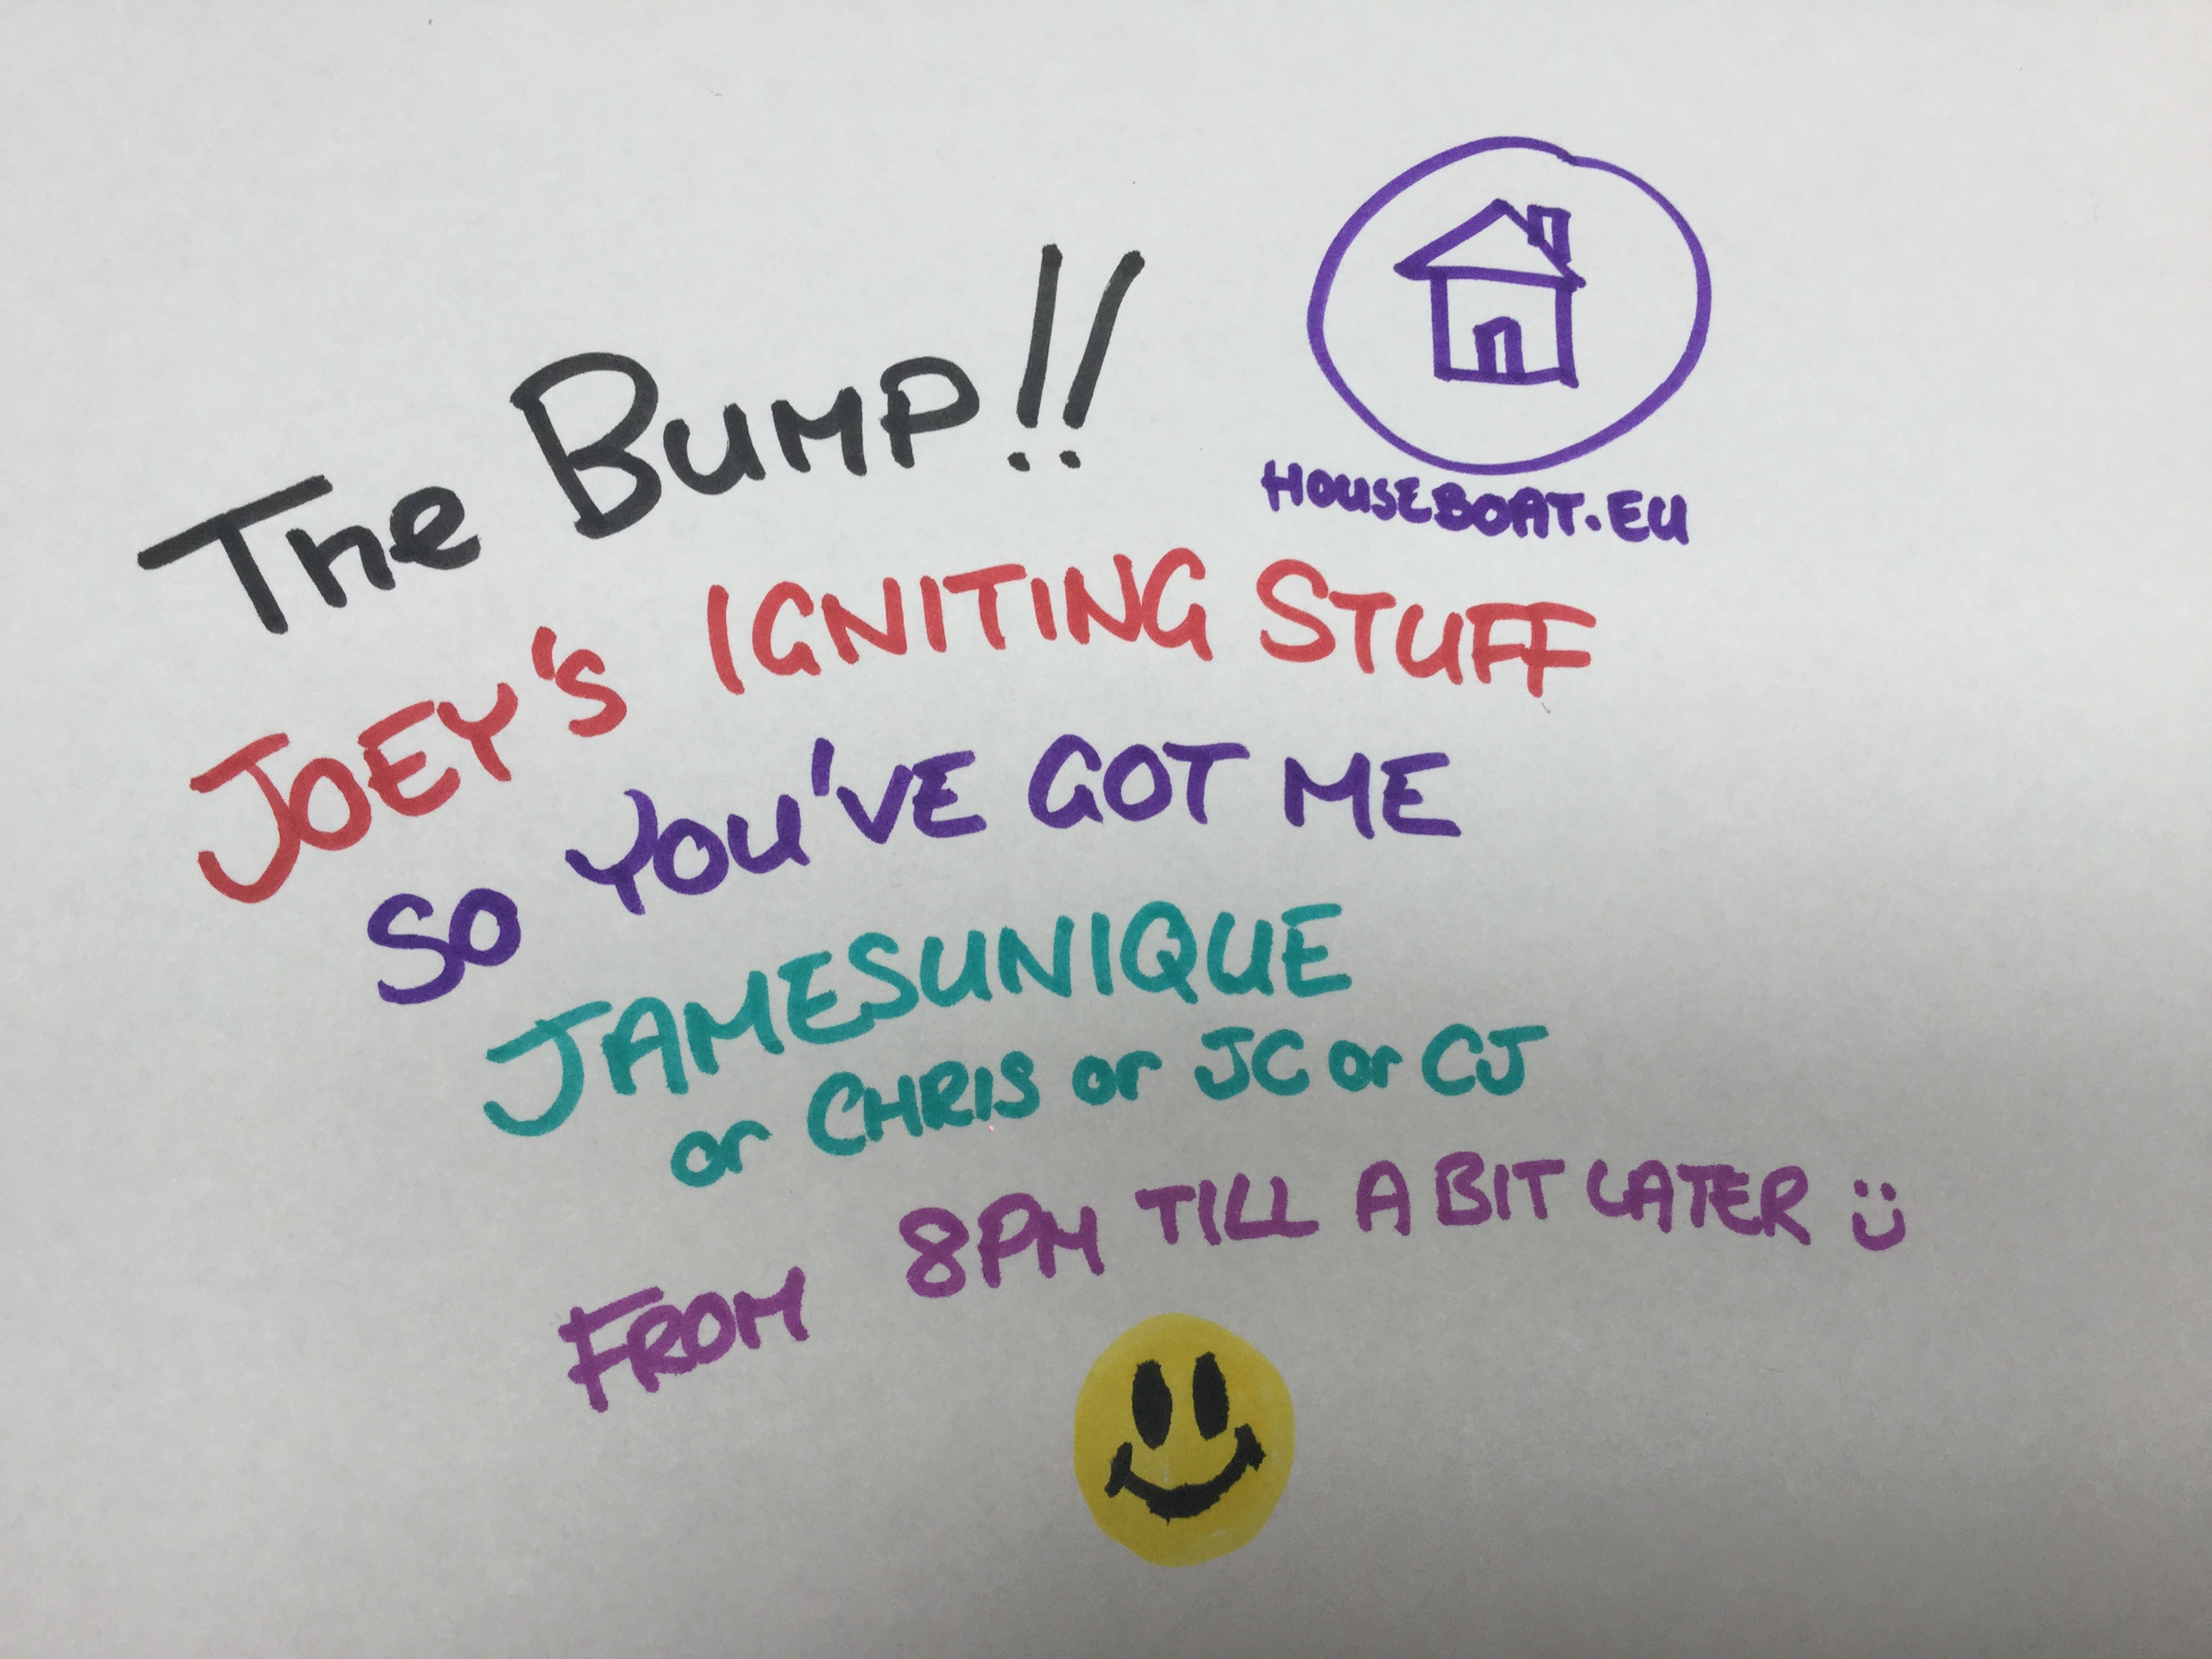 The Bump!!
HOUSEBOAT.EU
JOEY'S IGNITING STUFF
SO YOU'VE GOT ME
JAMESUNIQUE
or CHRIS or JC or CJ
FROM 8PM TILL A BIT LATER :)